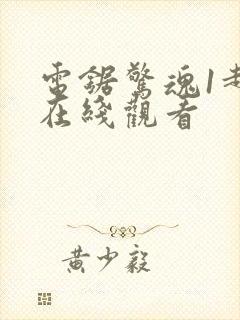 電鋸驚魂1老
在綫觀看
黃少毅